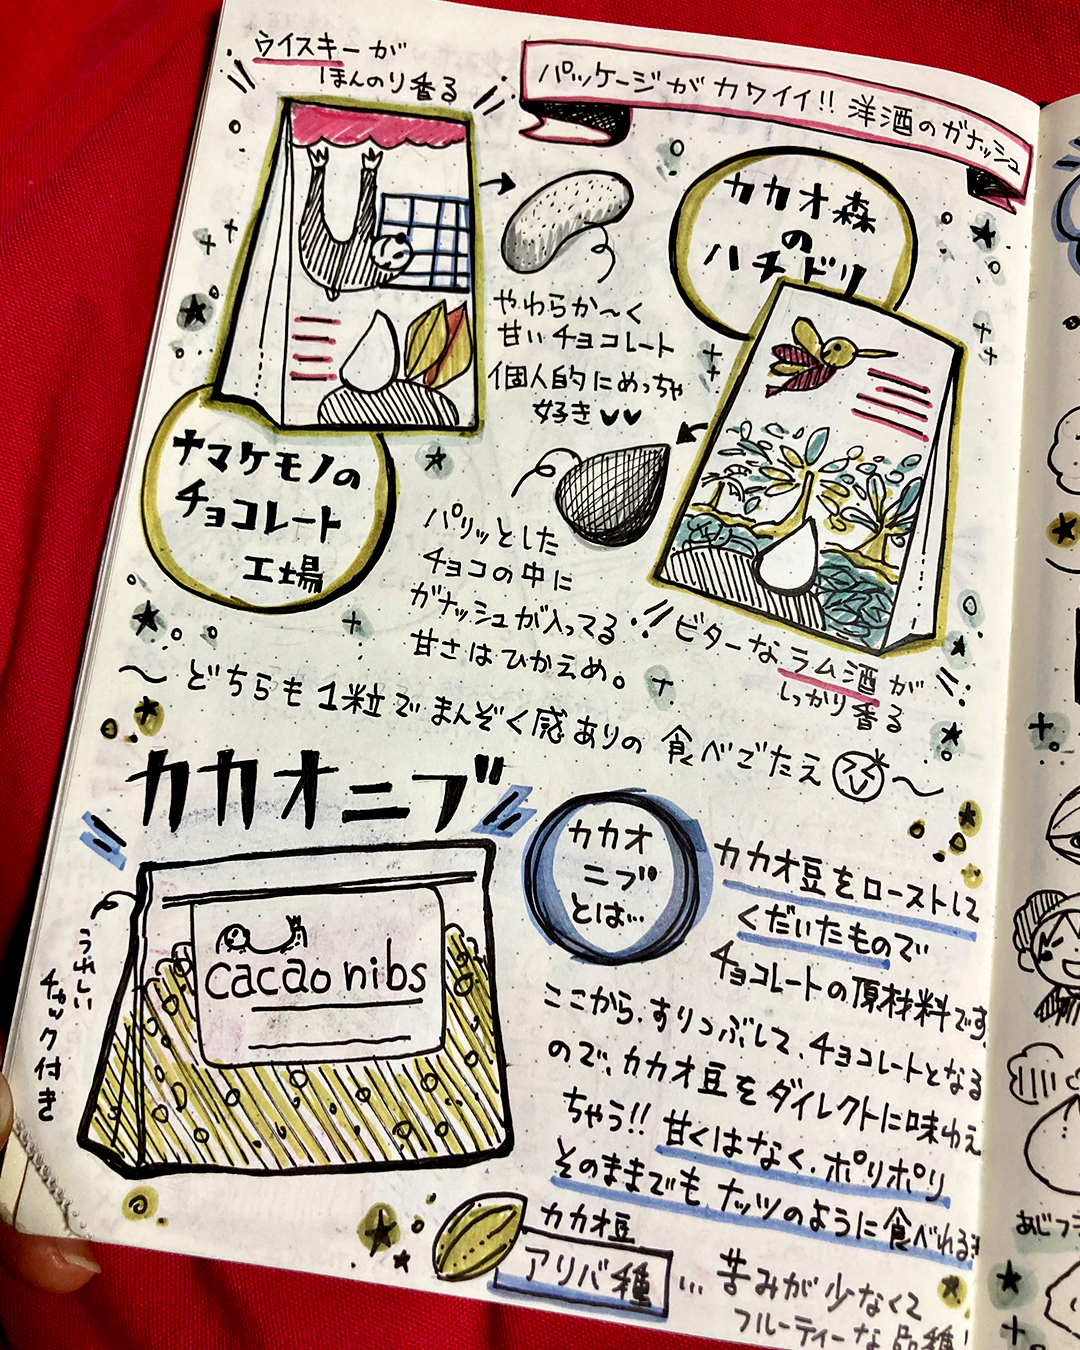 ウイスキーが
ほんのり香る
パッケージがカワイイ!! 洋酒のガナッシュ
カカオ森
の
ハチドリ
やわらか〜く
甘いチョコレート
個人的にめっちゃ
好き♥♥
ナマケモノの
チョコレート
工場
パリッとした
チョコの中に
ガナッシュが入ってる
甘さはひかえめ。
ビターなラム酒が
しっかり香る
〜どちらも1粒でまんぞく感ありの食べごたえ〜
カカオニブ
うれしい
チャック付き
cacao nibs
カカオ
ニブ
とは…
カカオ豆をローストして
くだいたもので
チョコレートの原材料です。
ここから、すりつぶして、チョコレートとなる
ので、カカオ豆をダイレクトに味わえ
ちゃう!! 甘くはなく、ポリポリ
そのままでもナッツのように食べれる!
カカオ豆
アリバ種
… 苦みが少なくて
フルーティーな品種!